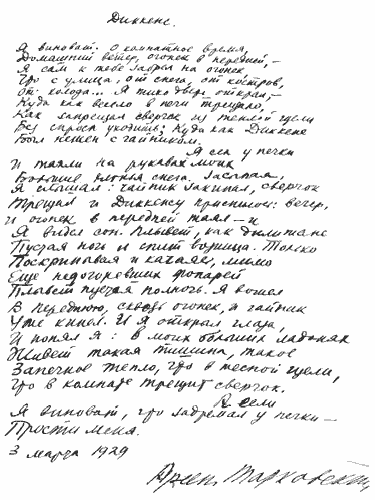 Диккенс.
Я виноват. О комнатное время,
Домашний ветер, огонек в передней, —
Я сам к тебе забрел на огонек
что с улицы, от снега, от костров,
от холода... Я тихо дверь открыл, —
Куда как весело в печи трещало,
Как запрещал сверчок из теплой щели
Без спроса уходить; Куда как Диккенс
Был нежен с чайником.
Я сел у печки
И таяли на рукавах моих
Большие хлопья снега. Засыпая,
Я слышал: чайник закипал, сверчок
Трещал и Диккенсу приснился: вечер,
и огонек в передней таял — и
Я видел сон. Плывет, как дилижанс
Пустая ночь и спит возница. Только
Поскрипывая и качаясь, мимо
Еще недогоревших фонарей
Плывет пустая полночь. Я вошел
В переднюю, сквозь огонек, и чайник
Уже кипел. И я открыл глаза,
И понял я: в моих больших ладонях
Живет такая тишина, такое
Запечное тепло, что в тесной щели,
что в комнате трещит сверчок.
И если
Я виноват, что задремал у печки —
Прости меня.
3 марта 1929
Арсен. Тарковский